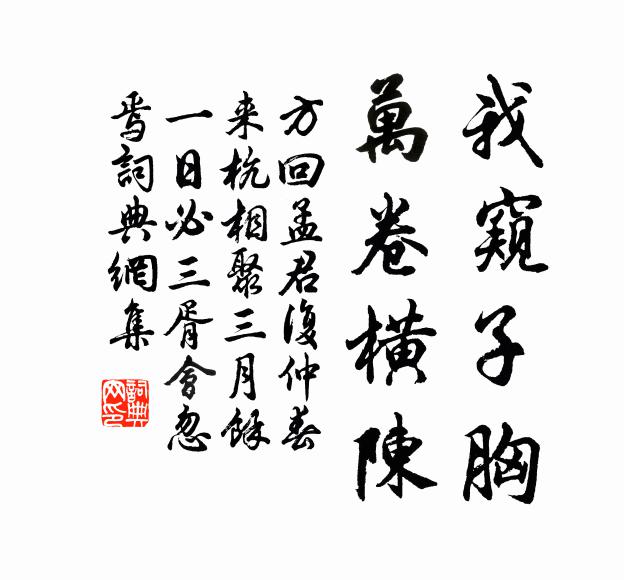 我窺子胸
萬卷橫陳
方回孟君復仲春
来杭相聚三月餘
一日必三胥會忽
焉詞典網集
詞典
网印